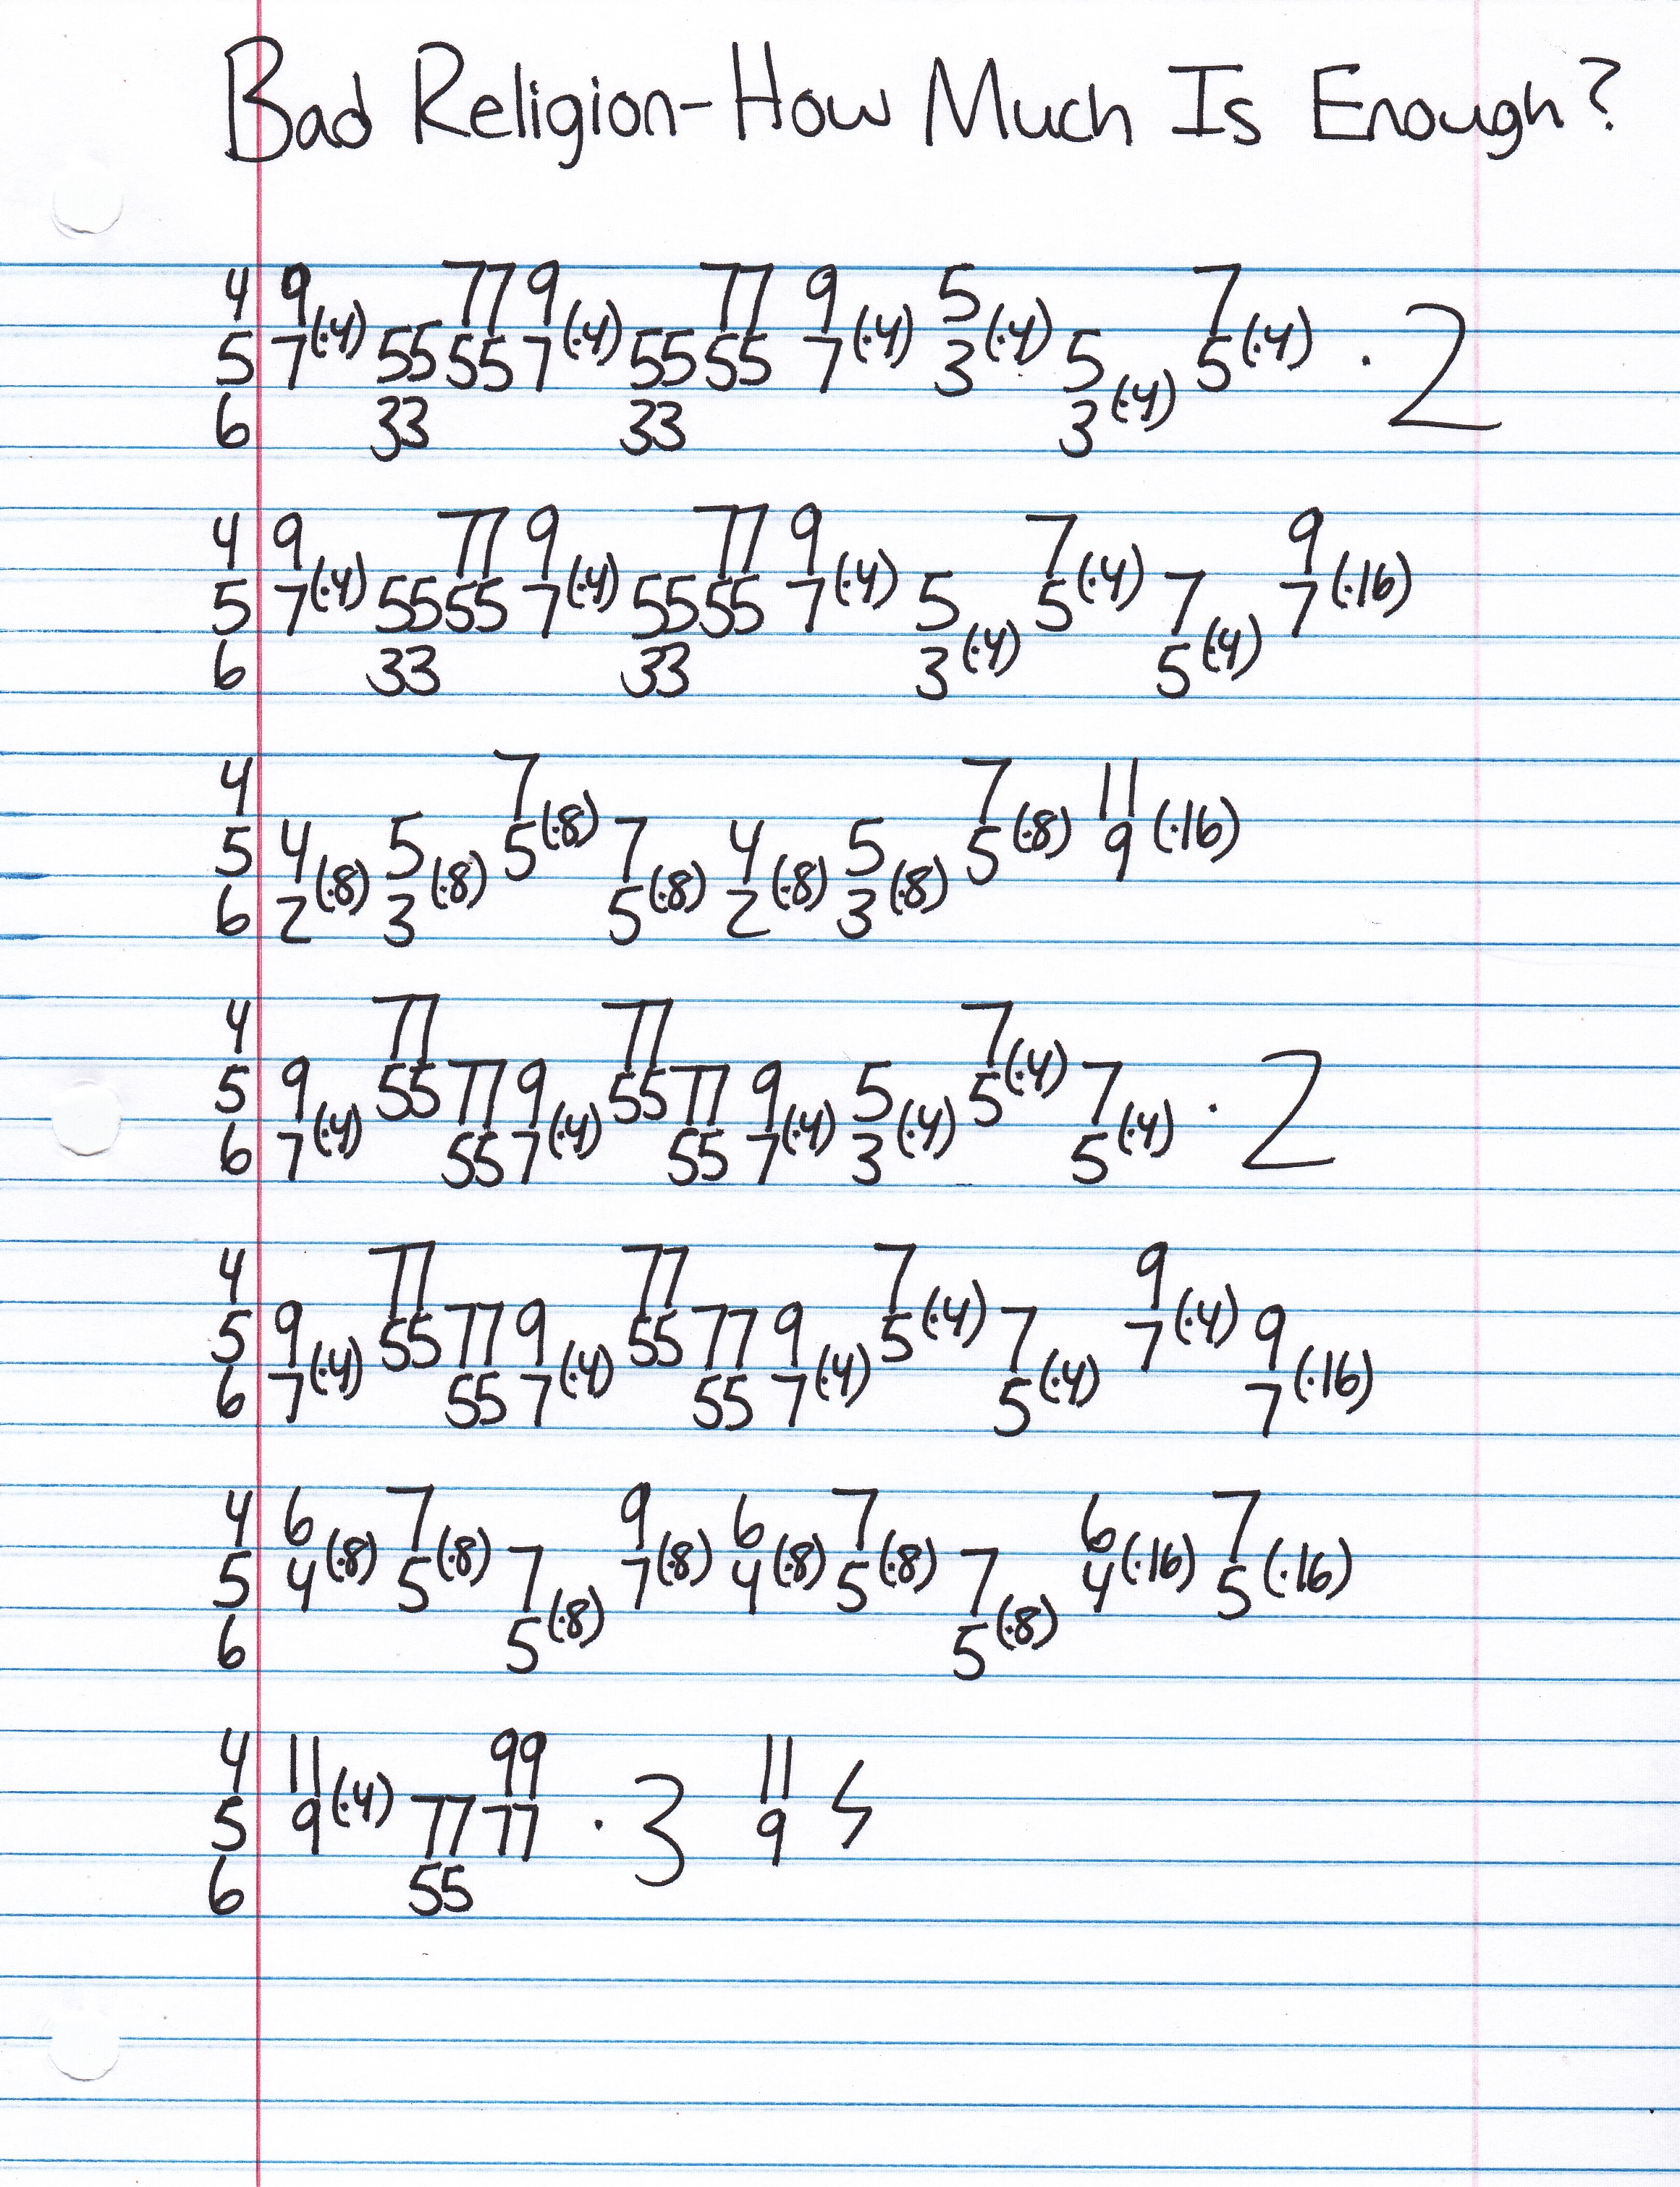 Bad Religion-How Much Is Enough?
4 9(·4) 77 9(·4) 77 9(·4) 5(·4) 7(·4) · 2
5 7 55 55 7 55 55 7 3 5(·4) 5
6 33 33 3
4 9(·4) 77 9(·4) 77 9(·4) 7(·4) 9(·16)
5 7 55 55 7 55 55 7 5(·4) 5 7(·4) 7
6 33 33 3 5
4 7(·8) 7(·8) 11(·16)
5 4(·8) 5(·8) 5 7(·8) 4(·8) 5(·8) 5 9
6 2 3 5 2 3
4 77 77 7(·4) · 2
5 9(·4) 55 77 9(·4) 55 77 9(·4) 5(·4) 5 7(·4)
6 7 55 7 55 7 3 5
4 77 77 7(·4) 9(·4)
5 9(·4) 55 77 9(·4) 55 77 9(·4) 5 7(·4) 7 9(·16)
6 7 55 7 55 7 5 7
4 6(·8) 7(·8) 9(·8) 6(·8) 7(·8) 6(·16) 7(·16)
5 4 5 7(·8) 7 4 5 7(·8) 4 5
6 5 5
4 11(·4) 99 · 3 11
5 9 77 77 9
6 55